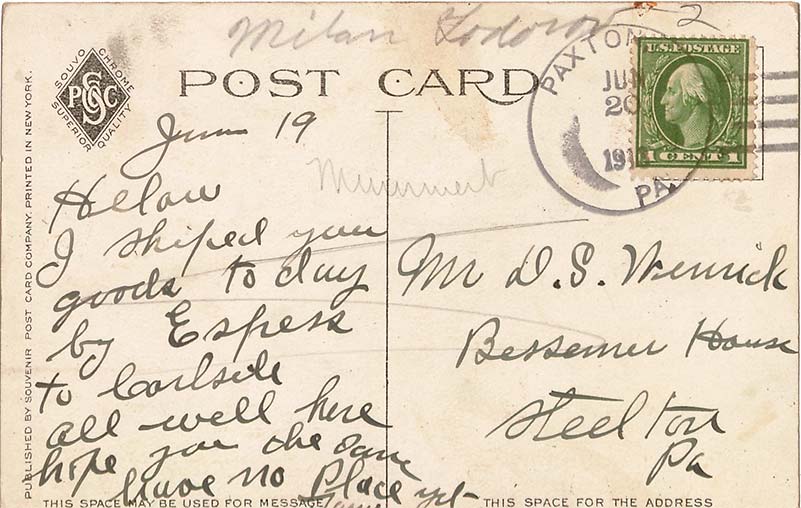 Milan Todorov 2
POST CARD
SOUVO CHROME
PSGC
SUPERIOR QUALITY
PAXTON
JUN
20
191
PA.
U.S. POSTAGE
1 CENT 1
PUBLISHED BY SOUVENIR POST CARD COMPANY, PRINTED IN NEW YORK.
June 19
Hellow
I shiped your
goods to day
by Espess
to Carlsile
all well here
hope you the same
have no Place yet
Mr D. S. Wenrick
Bessemer House
Steelton
Pa
THIS SPACE MAY BE USED FOR MESSAGE
THIS SPACE FOR THE ADDRESS